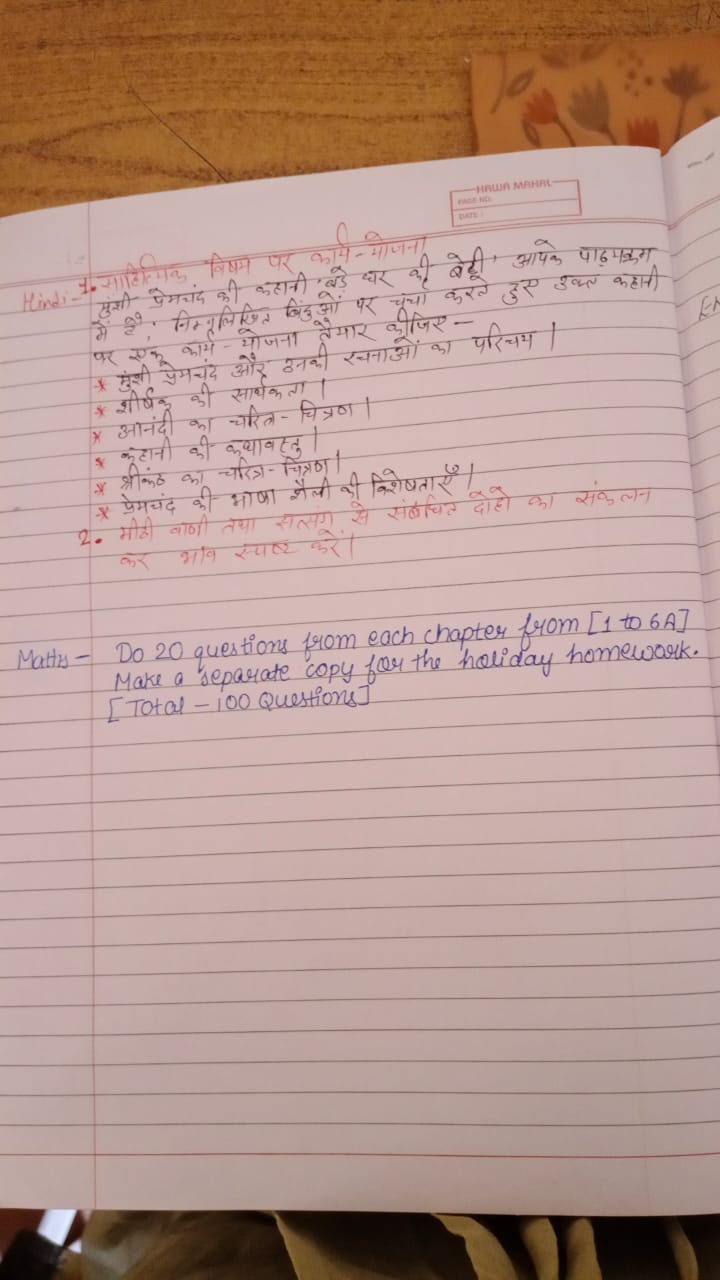 HAWA MAHAL
PAGE NO.
DATE :
Hindi - 1. साहित्यिक विषय पर कार्य - योजना
मुंशी प्रेमचंद की कहानी 'बड़े घर की बेटी' आपके पाठ्यक्रम
में है, निम्नलिखित बिंदुओं पर चर्चा करते हुए उक्त कहानी
पर एक कार्य - योजना तैयार कीजिए -
* मुंशी प्रेमचंद और उनकी रचनाओं का परिचय |
* शीर्षक की सार्थकता |
* आनंदी का चरित्र - चित्रण |
* कहानी की कथावस्तु |
* श्रीकंठ का चरित्र - चित्रण |
* प्रेमचंद की भाषा शैली की विशेषताएँ |
2. मीठी वाणी तथा सत्संग से संबंधित दोहों का संकलन
कर भाव स्पष्ट करें |
Maths - Do 20 questions from each chapter from [1 to 6A]
Make a separate copy for the holiday homework.
[Total - 100 Questions]